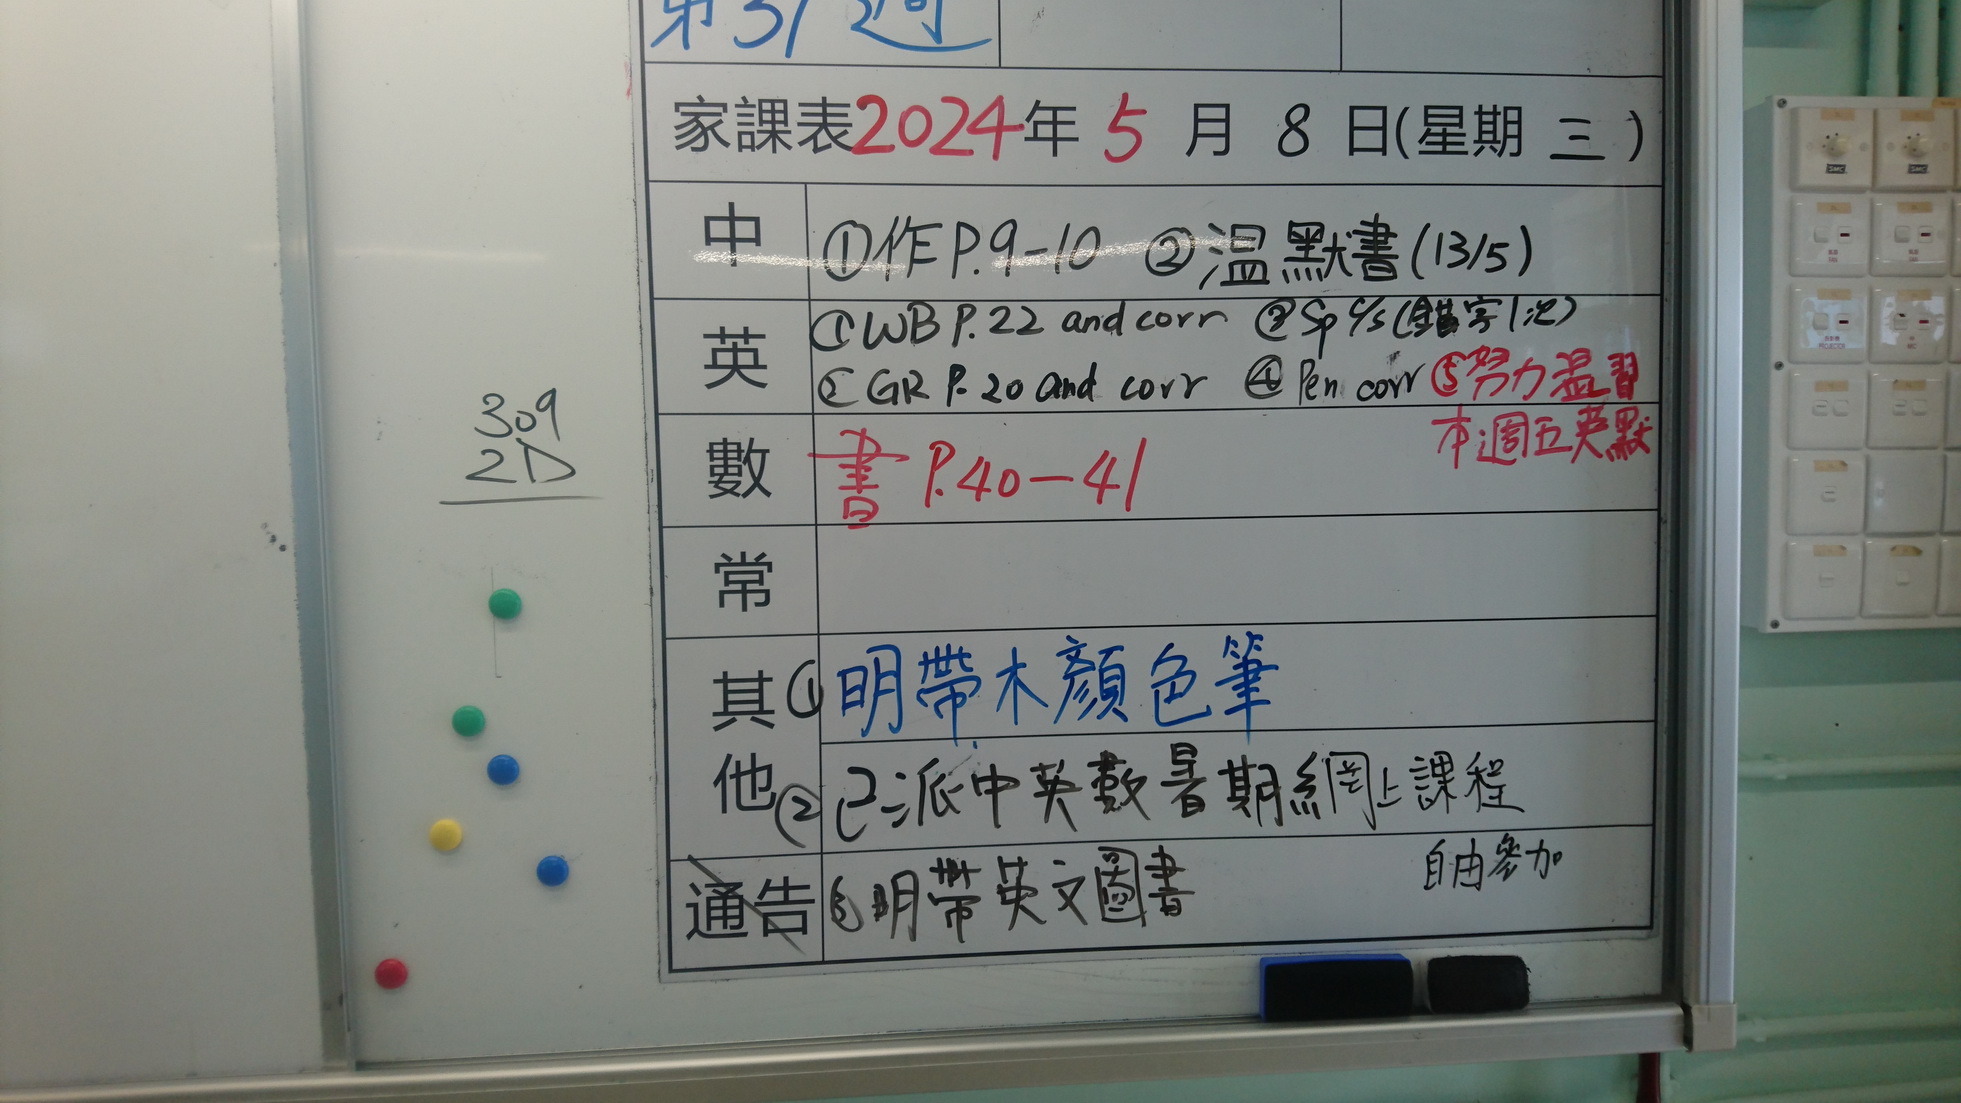 第31週
家課表2024年 5 月 8 日(星期 三 )
中 ①作P.9-10 ②溫默書(13/5)
英 ①WB P.22 and corr ③Sp c/s(錯字1次)
②GR P.20 and corr ④Pen corr ⑤努力溫習
本週五英默
數 書 P.40-41
常
其他 ①明帶木顏色筆
②已派中英數暑期網上課程
自由參加
通告 ③明帶英文圖書
309
2D